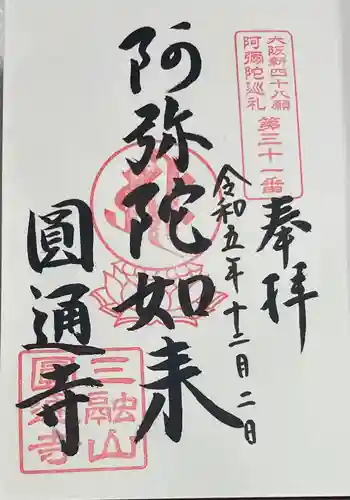 大阪新四十八願
阿彌陀巡礼
第三十一番
奉拝
令和五年十二月二日
阿弥陀如来
圓通寺
三融山
圓通寺